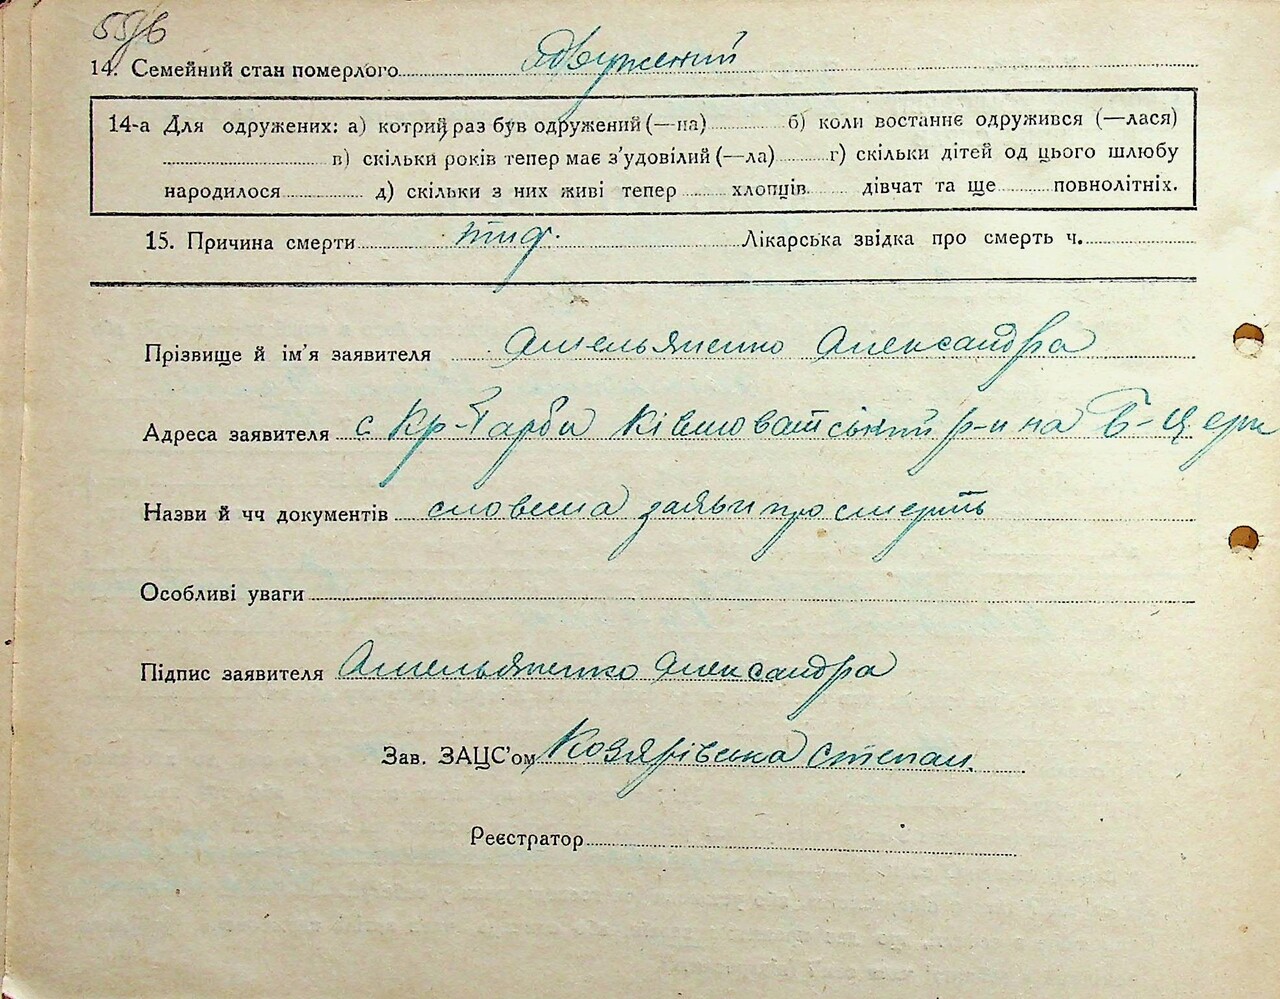 55/6
14. Семейний стан померлого одружений
14-а Для одружених: а) котрий раз був одружений (—на) б) коли востаннє одружився (—лася)
в) скільки років тепер має з'удовілий (—ла) г) скільки дітей од цього шлюбу
народилося д) скільки з них живі тепер хлопців дівчат та ще повнолітніх.
15. Причина смерти тиф. Лікарська звідка про смерть ч.
Прізвище й ім'я заявителя Омельяненко Олександра
Адреса заявителя с Кр-Гарби Ківшоватський р-и на Б-Церк
Назви й чч документів словесна заяви про смерть
Особливі уваги
Підпис заявителя Омельяненко Олександра
Зав. ЗАЦС'ом Козярівська Степан.
Реєстратор